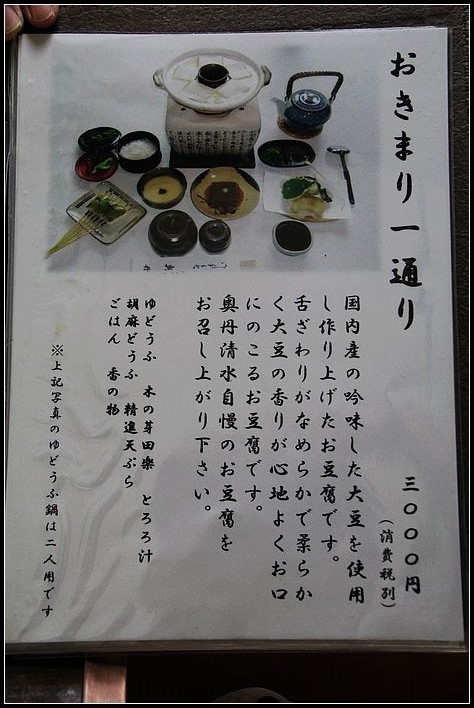 おきまり一通り
三〇〇〇円
(消費税別)
国内産の吟味した大豆を使用
し作り上げたお豆腐です。
舌ざわりがなめらかで柔らか
く大豆の香りが心地よくお口
にのこるお豆腐です。
奥丹清水自慢のお豆腐を
お召し上がり下さい。
ゆどうふ 木の芽田楽 とろろ汁
胡麻どうふ 精進天ぷら
ごはん 香の物
※上記写真のゆどうふ鍋は二人用です